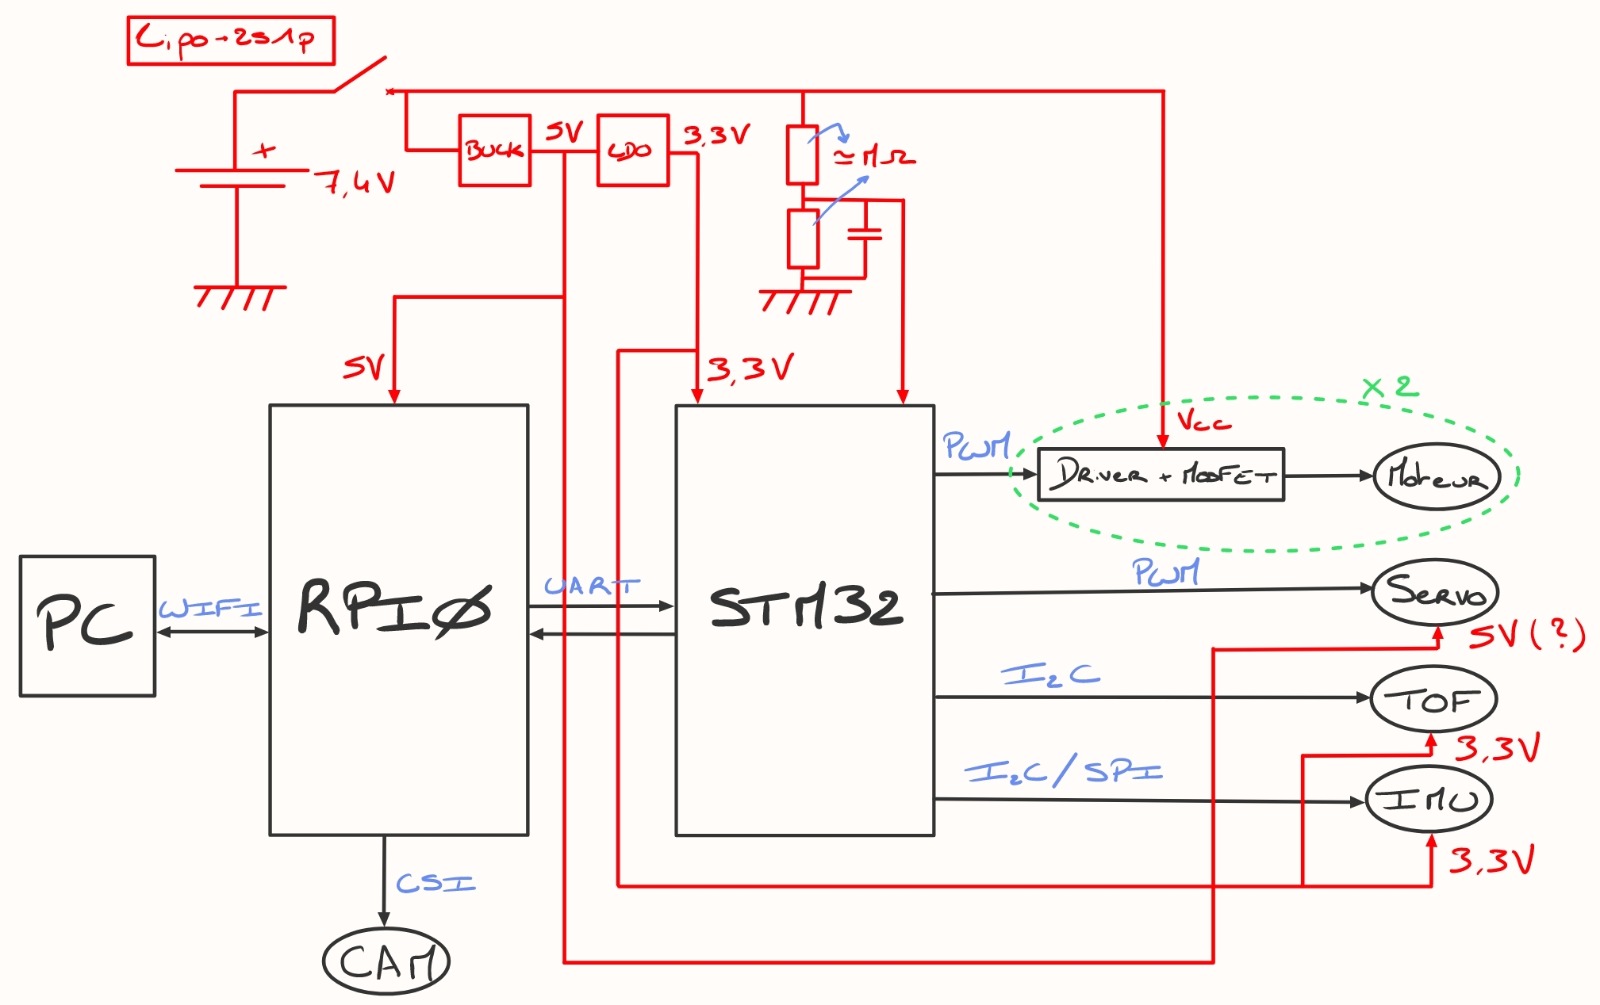 Lipo-2s1p
Buck
5V
LDO
3,3V
+
7,4V
≈MΩ
5V
3,3V
x2
Vcc
PWM
Driver + MOSFET
Moteur
PC
WIFI
RPIØ
UART
STM32
PWM
Servo
5V (?)
I2C
TOF
3,3V
I2C/SPI
IMU
3,3V
CSI
CAM